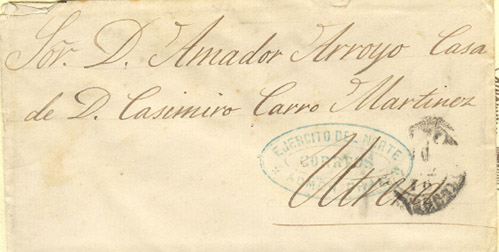 Sór. D. Amador Arroyo Casa
de D. Casimiro Carro Martinez
EJERCITO DEL NORTE
CORREOS